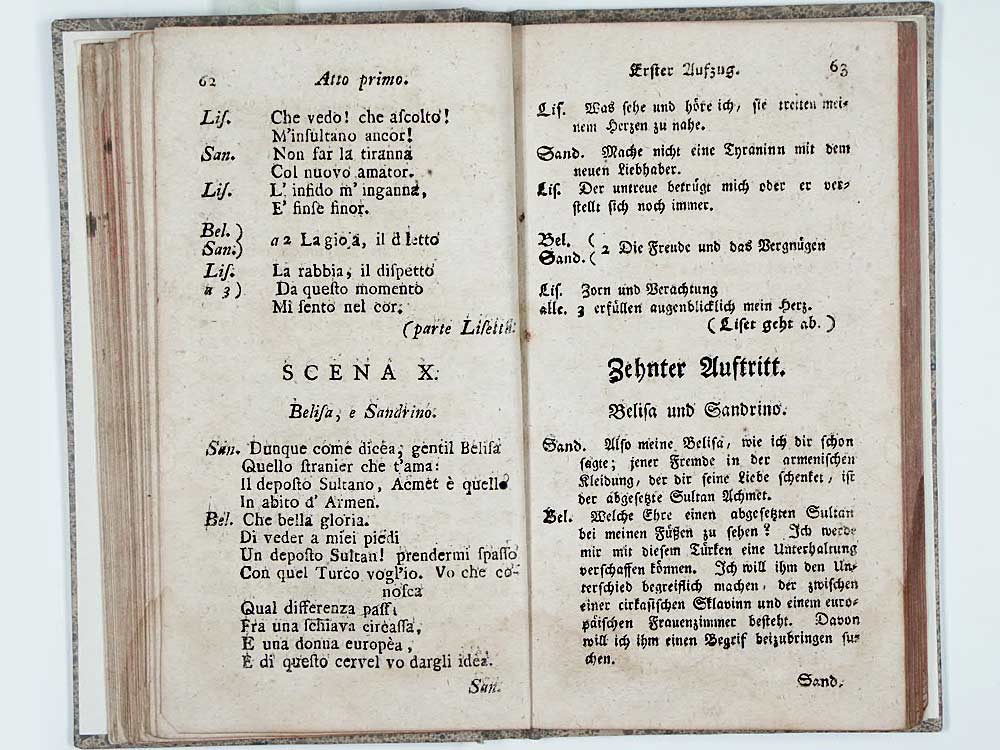 62 Atto primo.
Liſ. Che vedo! che aſcolto!
M'inſultano ancor!
San. Non far la tiranna
Col nuovo amator.
Liſ. L' infido m' inganna,
E' finſe finor.
Bel. )
San.) a 2 La gioja, il diletto
Liſ. La rabbia, il diſpetto
a 3 ) Da queſto momento
Mi ſento nel cor.
(parte Liſetta.
SCENA X.
Beliſa, e Sandrino.
San. Dunque come dicea, gentil Beliſa
Quello ſtranier che t'ama:
Il depoſto Sultano, Acmet è quello
In abito d' Armen.
Bel. Che bella gloria.
Di veder a miei piedi
Un depoſto Sultan! prendermi ſpaſſo
Con quel Turco vogl'io. Vo che co-
noſca
Qual differenza paſſi
Fra una ſchiava circaſſa,
E una donna europèa,
E di queſto cervel vo dargli idea.
San.
Erſter Aufzug. 63
Liſ. Was ſehe und höre ich, ſie tretten mei-
nem Herzen zu nahe.
Sand. Mache nicht eine Tyraninn mit dem
neuen Liebhaber.
Liſ. Der untreue betrügt mich oder er ver-
ſtellt ſich noch immer.
Bel. (
Sand. ( 2 Die Freude und das Vergnügen
Liſ. Zorn und Verachtung
alle. 3 erfüllen augenblicklich mein Herz.
(Liſet geht ab.)
Zehnter Auftritt.
Beliſa und Sandrino.
Sand. Alſo meine Beliſa, wie ich dir ſchon
ſagte; jener Fremde in der armeniſchen
Kleidung, der dir ſeine Liebe ſchenket, iſt
der abgeſetzte Sultan Achmet.
Bel. Welche Ehre einen abgeſetzten Sultan
bei meinen Füßen zu ſehen? Ich werde
mir mit dieſem Türken eine Unterhaltung
verſchaffen können. Ich will ihm den Un-
terſchied begreiflich machen, der zwiſchen
einer cirkaſiſchen Sklavinn und einem euro-
päiſchen Frauenzimmer beſteht. Davon
will ich ihm einen Begrif beizubringen ſu-
chen.
Sand.